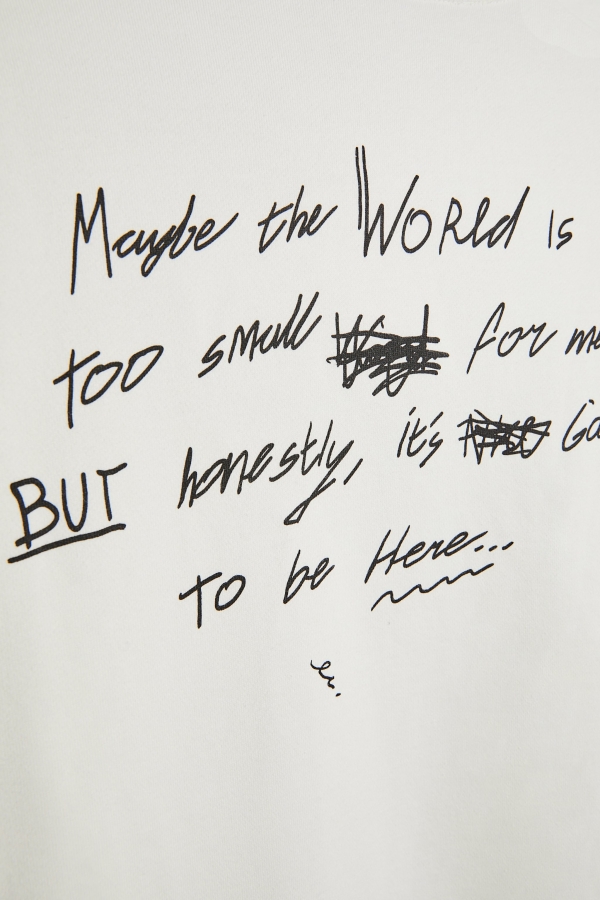 Maybe the World is
too small for
BUT honestly, it's
To be Here...